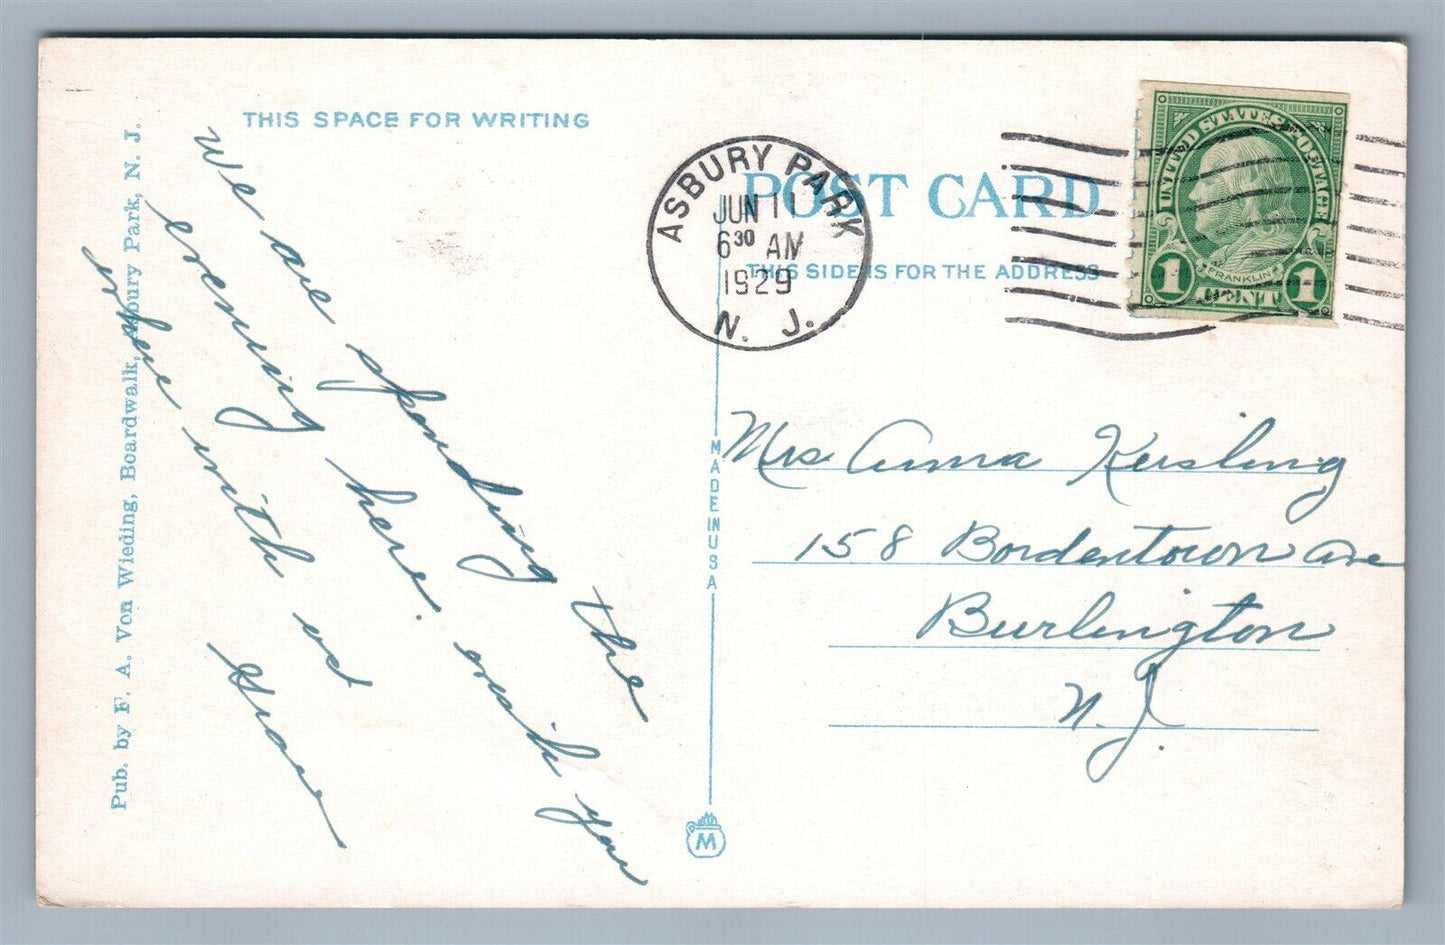 THIS SPACE FOR WRITING
We are spending the
evening here. wish you
where with us
Grace
Pub. by F. A. Von Wieding, Boardwalk, Asbury Park, N. J.
ASBURY PARK
JUN 11
6 30 AM
1929
N. J.
POST CARD
THIS SIDE IS FOR THE ADDRESS
UNITED STATES POSTAGE
FRANKLIN
1 CENT 1
MADE IN USA
M
Mrs. Anna Keisling
158 Bordentown Ave
Burlington
N. J.